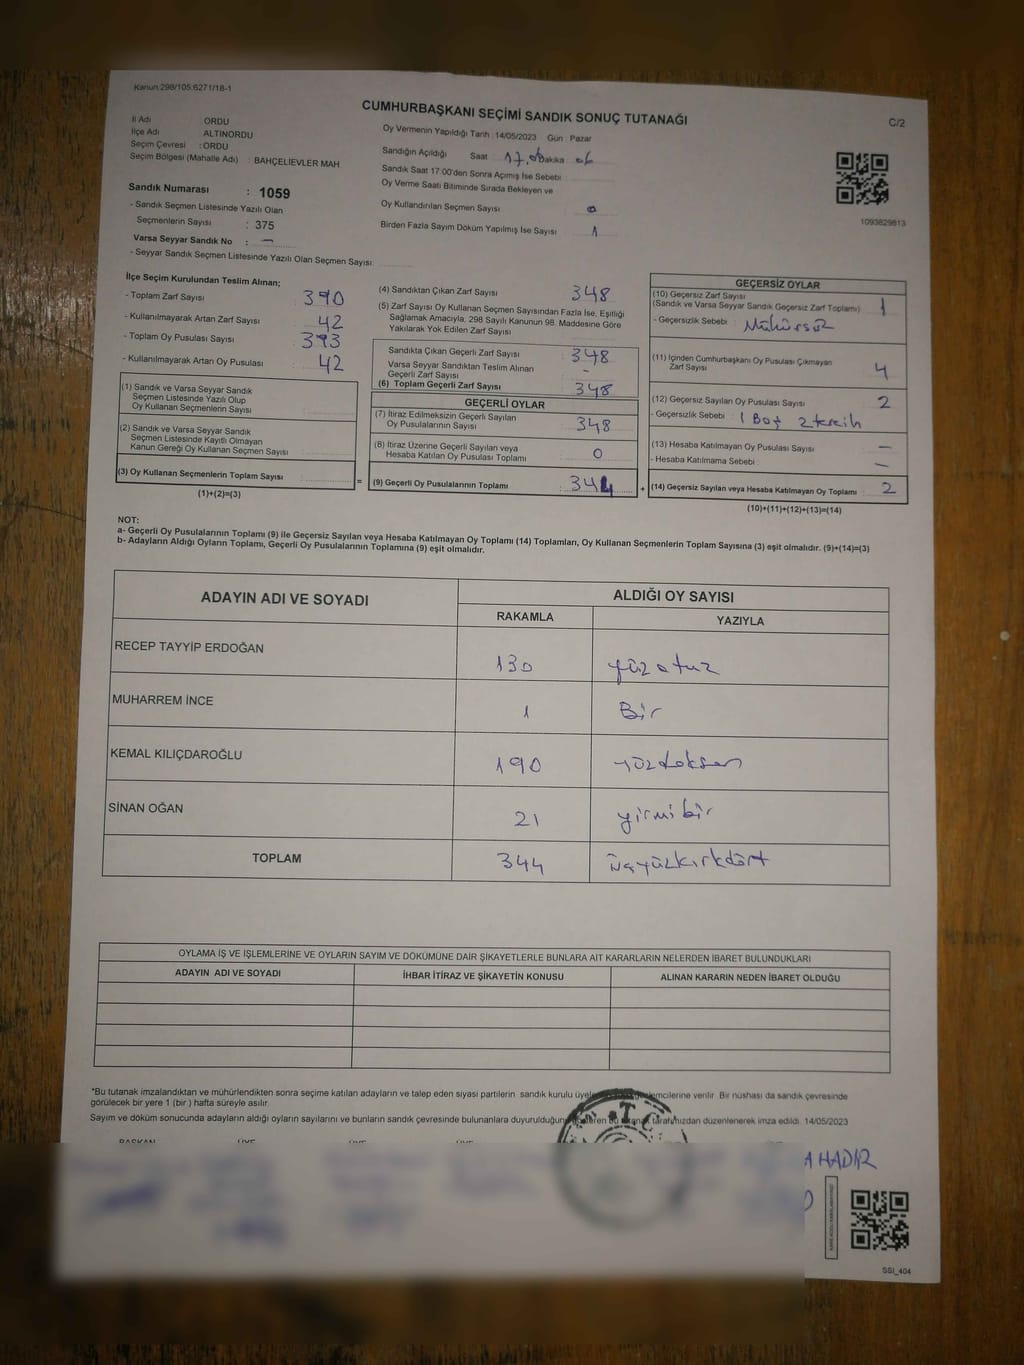 Kanun:298/105;6271/18-1
CUMHURBAŞKANI SEÇİMİ SANDIK SONUÇ TUTANAĞI
C/2
İl Adı : ORDU
İlçe Adı : ALTINORDU
Seçim Çevresi : ORDU
Seçim Bölgesi (Mahalle Adı) : BAHÇELİEVLER MAH
Oy Vermenin Yapıldığı Tarih : 14/05/2023 Gün : Pazar
Sandığın Açıldığı Saat : 17.06 Dakika : 06
Sandık Saat 17:00'den Sonra Açımış İse Sebebi :
Oy Verme Saati Bitiminde Sırada Bekleyen ve
Oy Kullandırılan Seçmen Sayısı : 0
Birden Fazla Sayım Döküm Yapılmış İse Sayısı : 1
1093829813
Sandık Numarası : 1059
- Sandık Seçmen Listesinde Yazılı Olan
Seçmenlerin Sayısı : 375
Varsa Seyyar Sandık No : -
- Seyyar Sandık Seçmen Listesinde Yazılı Olan Seçmen Sayısı:
İlçe Seçim Kurulundan Teslim Alınan;
- Toplam Zarf Sayısı 390
- Kullanılmayarak Artan Zarf Sayısı 42
- Toplam Oy Pusulası Sayısı 393
- Kullanılmayarak Artan Oy Pusulası 42
(1) Sandık ve Varsa Seyyar Sandık
Seçmen Listesinde Yazılı Olup
Oy Kullanan Seçmenlerin Sayısı
(2) Sandık ve Varsa Seyyar Sandık
Seçmen Listesinde Kayıtlı Olmayan
Kanun Gereği Oy Kullanan Seçmen Sayısı
(3) Oy Kullanan Seçmenlerin Toplam Sayısı
(1)+(2)=(3)
(4) Sandıktan Çıkan Zarf Sayısı 348
(5) Zarf Sayısı Oy Kullanan Seçmen Sayısından Fazla İse, Eşitliği
Sağlamak Amacıyla, 298 Sayılı Kanunun 98. Maddesine Göre
Yakılarak Yok Edilen Zarf Sayısı
Sandıkta Çıkan Geçerli Zarf Sayısı 348
Varsa Seyyar Sandıktan Teslim Alınan
Geçerli Zarf Sayısı -
(6) Toplam Geçerli Zarf Sayısı 348
GEÇERLİ OYLAR
(7) İtiraz Edilmeksizin Geçerli Sayılan
Oy Pusulalarının Sayısı 348
(8) İtiraz Üzerine Geçerli Sayılan veya
Hesaba Katılan Oy Pusulası Toplamı 0
= (9) Geçerli Oy Pusulalarının Toplamı 344 +
GEÇERSİZ OYLAR
(10) Geçersiz Zarf Sayısı
(Sandık ve Varsa Seyyar Sandık Geçersiz Zarf Toplamı) 1
- Geçersizlik Sebebi : Mühürsüz
(11) İçinden Cumhurbaşkanı Oy Pusulası Çıkmayan
Zarf Sayısı 4
(12) Geçersiz Sayılan Oy Pusulası Sayısı 2
- Geçersizlik Sebebi : 1 Boş 2 tercih
(13) Hesaba Katılmayan Oy Pusulası Sayısı -
- Hesaba Katılmama Sebebi : -
(14) Geçersiz Sayılan veya Hesaba Katılmayan Oy Toplamı 2
(10)+(11)+(12)+(13)=(14)
NOT:
a- Geçerli Oy Pusulalarının Toplamı (9) ile Geçersiz Sayılan veya Hesaba Katılmayan Oy Toplamı (14) Toplamları, Oy Kullanan Seçmenlerin Toplam Sayısına (3) eşit olmalıdır. (9)+(14)=(3)
b- Adayların Aldığı Oyların Toplamı, Geçerli Oy Pusulalarının Toplamına (9) eşit olmalıdır.
ADAYIN ADI VE SOYADI
ALDIĞI OY SAYISI
RAKAMLA YAZIYLA
RECEP TAYYİP ERDOĞAN 130 yüzotuz
MUHARREM İNCE 1 Bir
KEMAL KILIÇDAROĞLU 190 yüzdoksan
SİNAN OĞAN 21 yirmibir
TOPLAM 344 üçyüzkırkdört
OYLAMA İŞ VE İŞLEMLERİNE VE OYLARIN SAYIM VE DÖKÜMÜNE DAİR ŞİKAYETLERLE BUNLARA AİT KARARLARIN NELERDEN İBARET BULUNDUKLARI
ADAYIN ADI VE SOYADI İHBAR İTİRAZ VE ŞİKAYETİN KONUSU ALINAN KARARIN NEDEN İBARET OLDUĞU
*Bu tutanak imzalandıktan ve mühürlendikten sonra seçime katılan adayların ve talep eden siyasi partilerin sandık kurulu verilir. Bir nüshası da sandık çevresinde
görülecek bir yere 1 (bir ) hafta süreyle asılır.
Sayım ve döküm sonucunda adayların aldığı oyların sayılarını ve bunların sandık çevresinde bulunanlara duyurulduğunu tarafımızdan düzenlenerek imza edildi. 14/05/2023
BAŞKAN ÜYE ÜYE ÜYE
T.C.
SSI_404